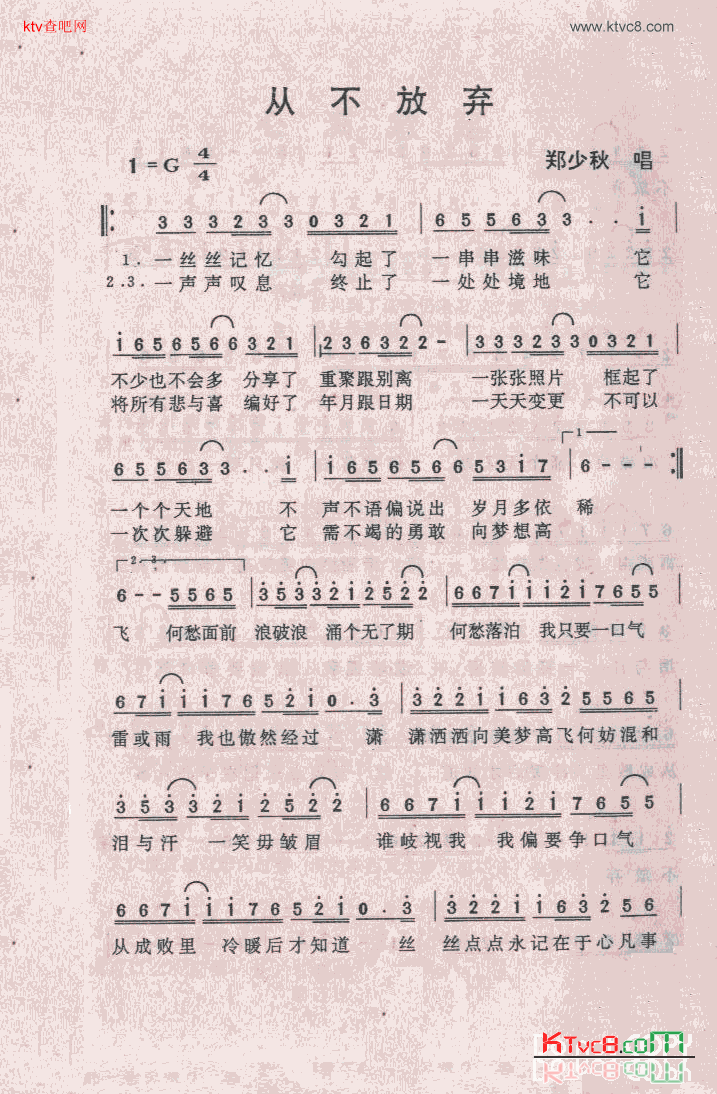 ktv查吧网
www.ktvc8.com
从不放弃
1=G 4/4
郑少秋 唱
3 3 3 2 3 3 0 3 2 1 | 6 5 5 6 3 3 · · i
1.一丝丝记忆 勾起了 一串串滋味 它
2.3.一声声叹息 终止了 一处处境地 它
i 6 5 6 5 6 6 3 2 1 | 2 3 6 3 2 2 - | 3 3 3 2 3 3 0 3 2 1
不少也不会多 分享了 重聚跟别离 一张张照片 框起了
将所有悲与喜 编好了 年月跟日期 一天天变更 不可以
6 5 5 6 3 3 · · i | i 6 5 6 5 6 5 6 6 5 3 i 7 | 1 6 - - :||
一个个天地 不 声不语偏说出 岁月多依稀
一次次躲避 它 需不竭的勇敢 向梦想高
2.3.
6 - - 5 5 6 5 | 3 5 3 3 2 1 2 5 2 2 | 6 6 7 i i i 2 i 7 6 5 5
飞 何愁面前 浪破浪 涌个无了期 何愁落泊 我只要一口气
6 7 i i i 7 6 5 2 i 0 · 3 | 3 2 2 i i 6 3 2 5 5 6 5
雷或雨 我也傲然经过 潇 潇洒洒向美梦高飞何妨混和
3 5 3 3 2 1 2 5 2 2 | 6 6 7 i i i 2 i 7 6 5 5
泪与汗 一笑毋皱眉 谁岐视我 我偏要争口气
6 6 7 i i i 7 6 5 2 i 0 · 3 | 3 2 2 i i 6 3 2 5 6
从成败里 冷暖后才知道 丝 丝点点永记在于心凡事
KTvc8.com